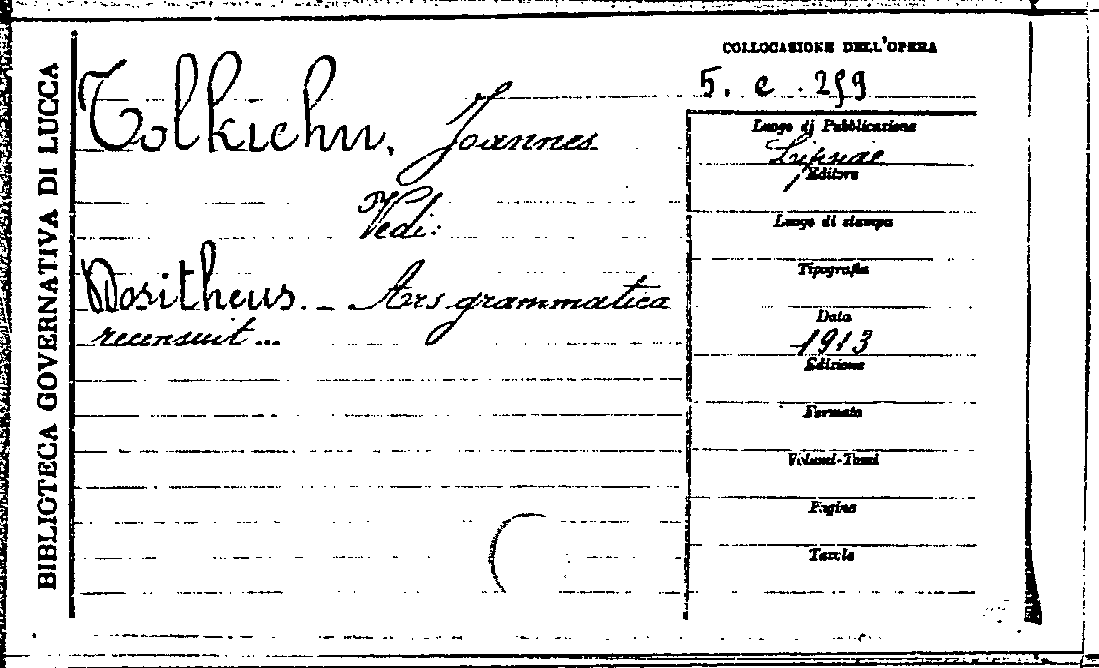 BIBLIOTECA GOVERNATIVA DI LUCCA
Tolkiehn, Joannes
Vedi:
Dositheus. – Ars grammatica
recensuit...
COLLOCAZIONE DELL'OPERA
5. e. 259
Luogo di Pubblicazione
Lipsiae
Editore
Luogo di stampa
Tipografia
Data
1913
Edizione
Formato
Volumi-Tomi
Pagine
Tavole